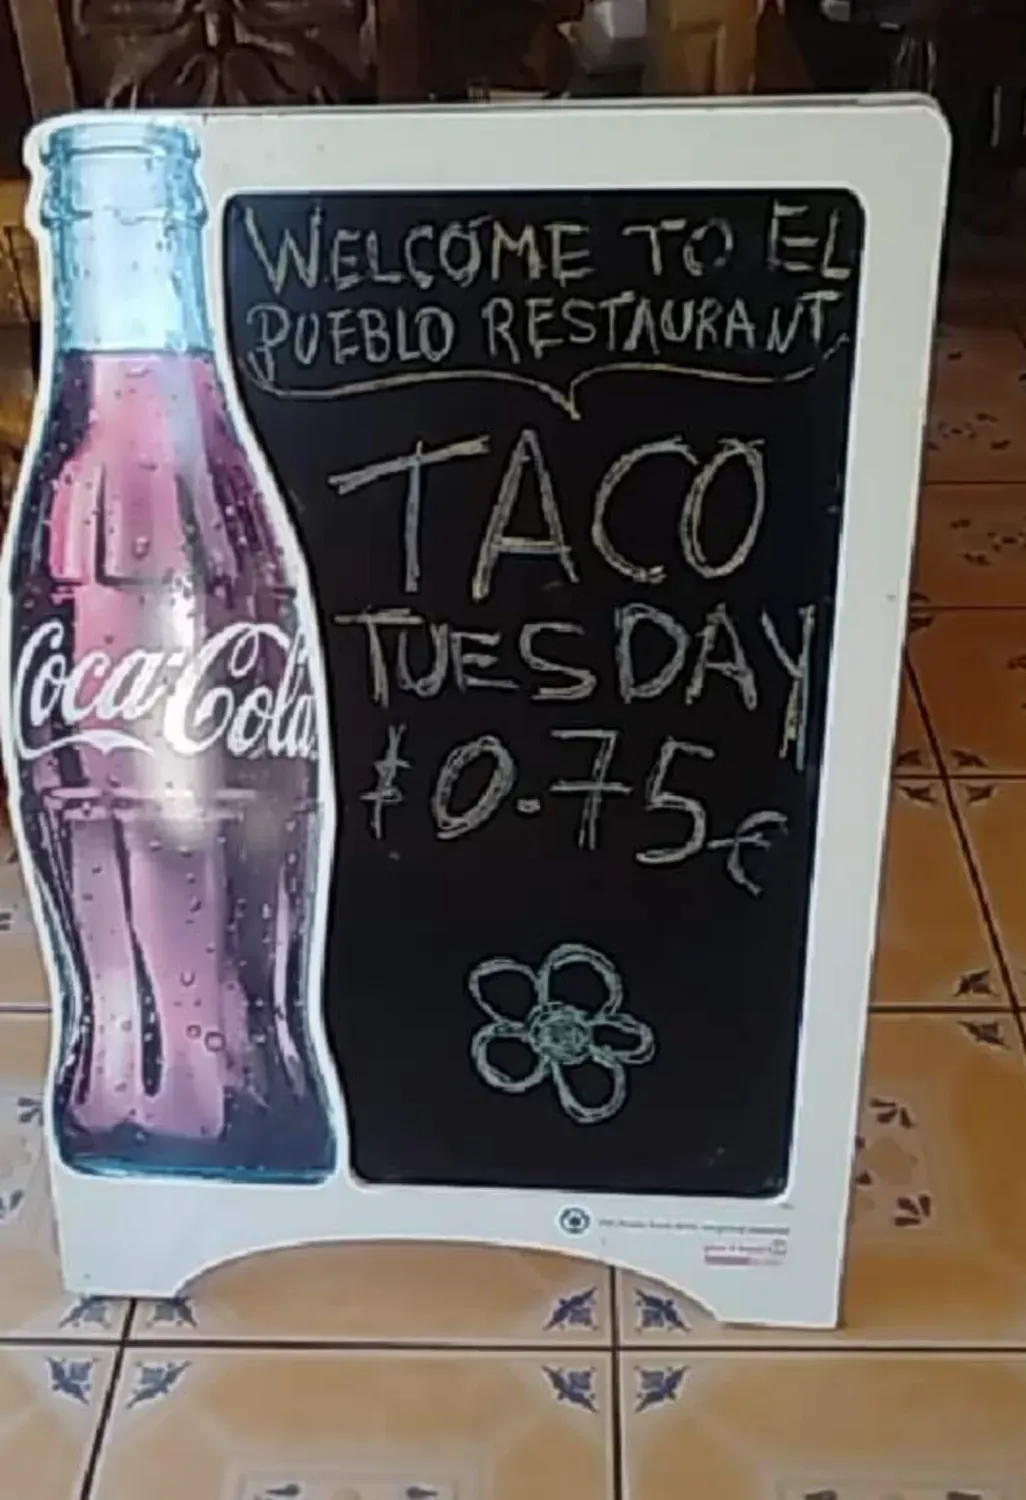 WELCOME TO EL
PUEBLO RESTAURANT
TACO
TUESDAY
$0.75¢
Coca-Cola